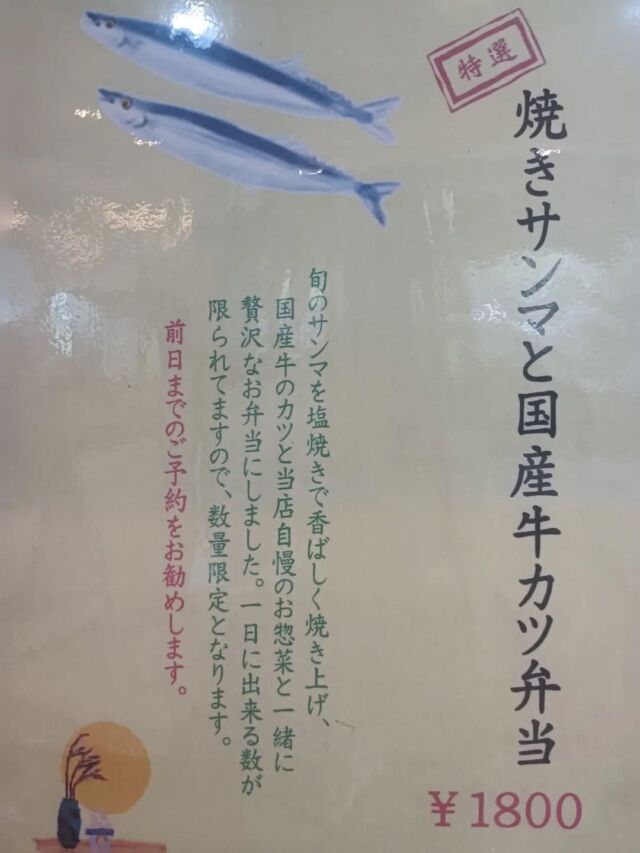 特選
焼きサンマと国産牛カツ弁当
¥1800
旬のサンマを塩焼きで香ばしく焼き上げ、
国産牛のカツと当店自慢のお惣菜と一緒に
贅沢なお弁当にしました。一日に出来る数が
限られてますので、数量限定となります。
前日までのご予約をお勧めします。